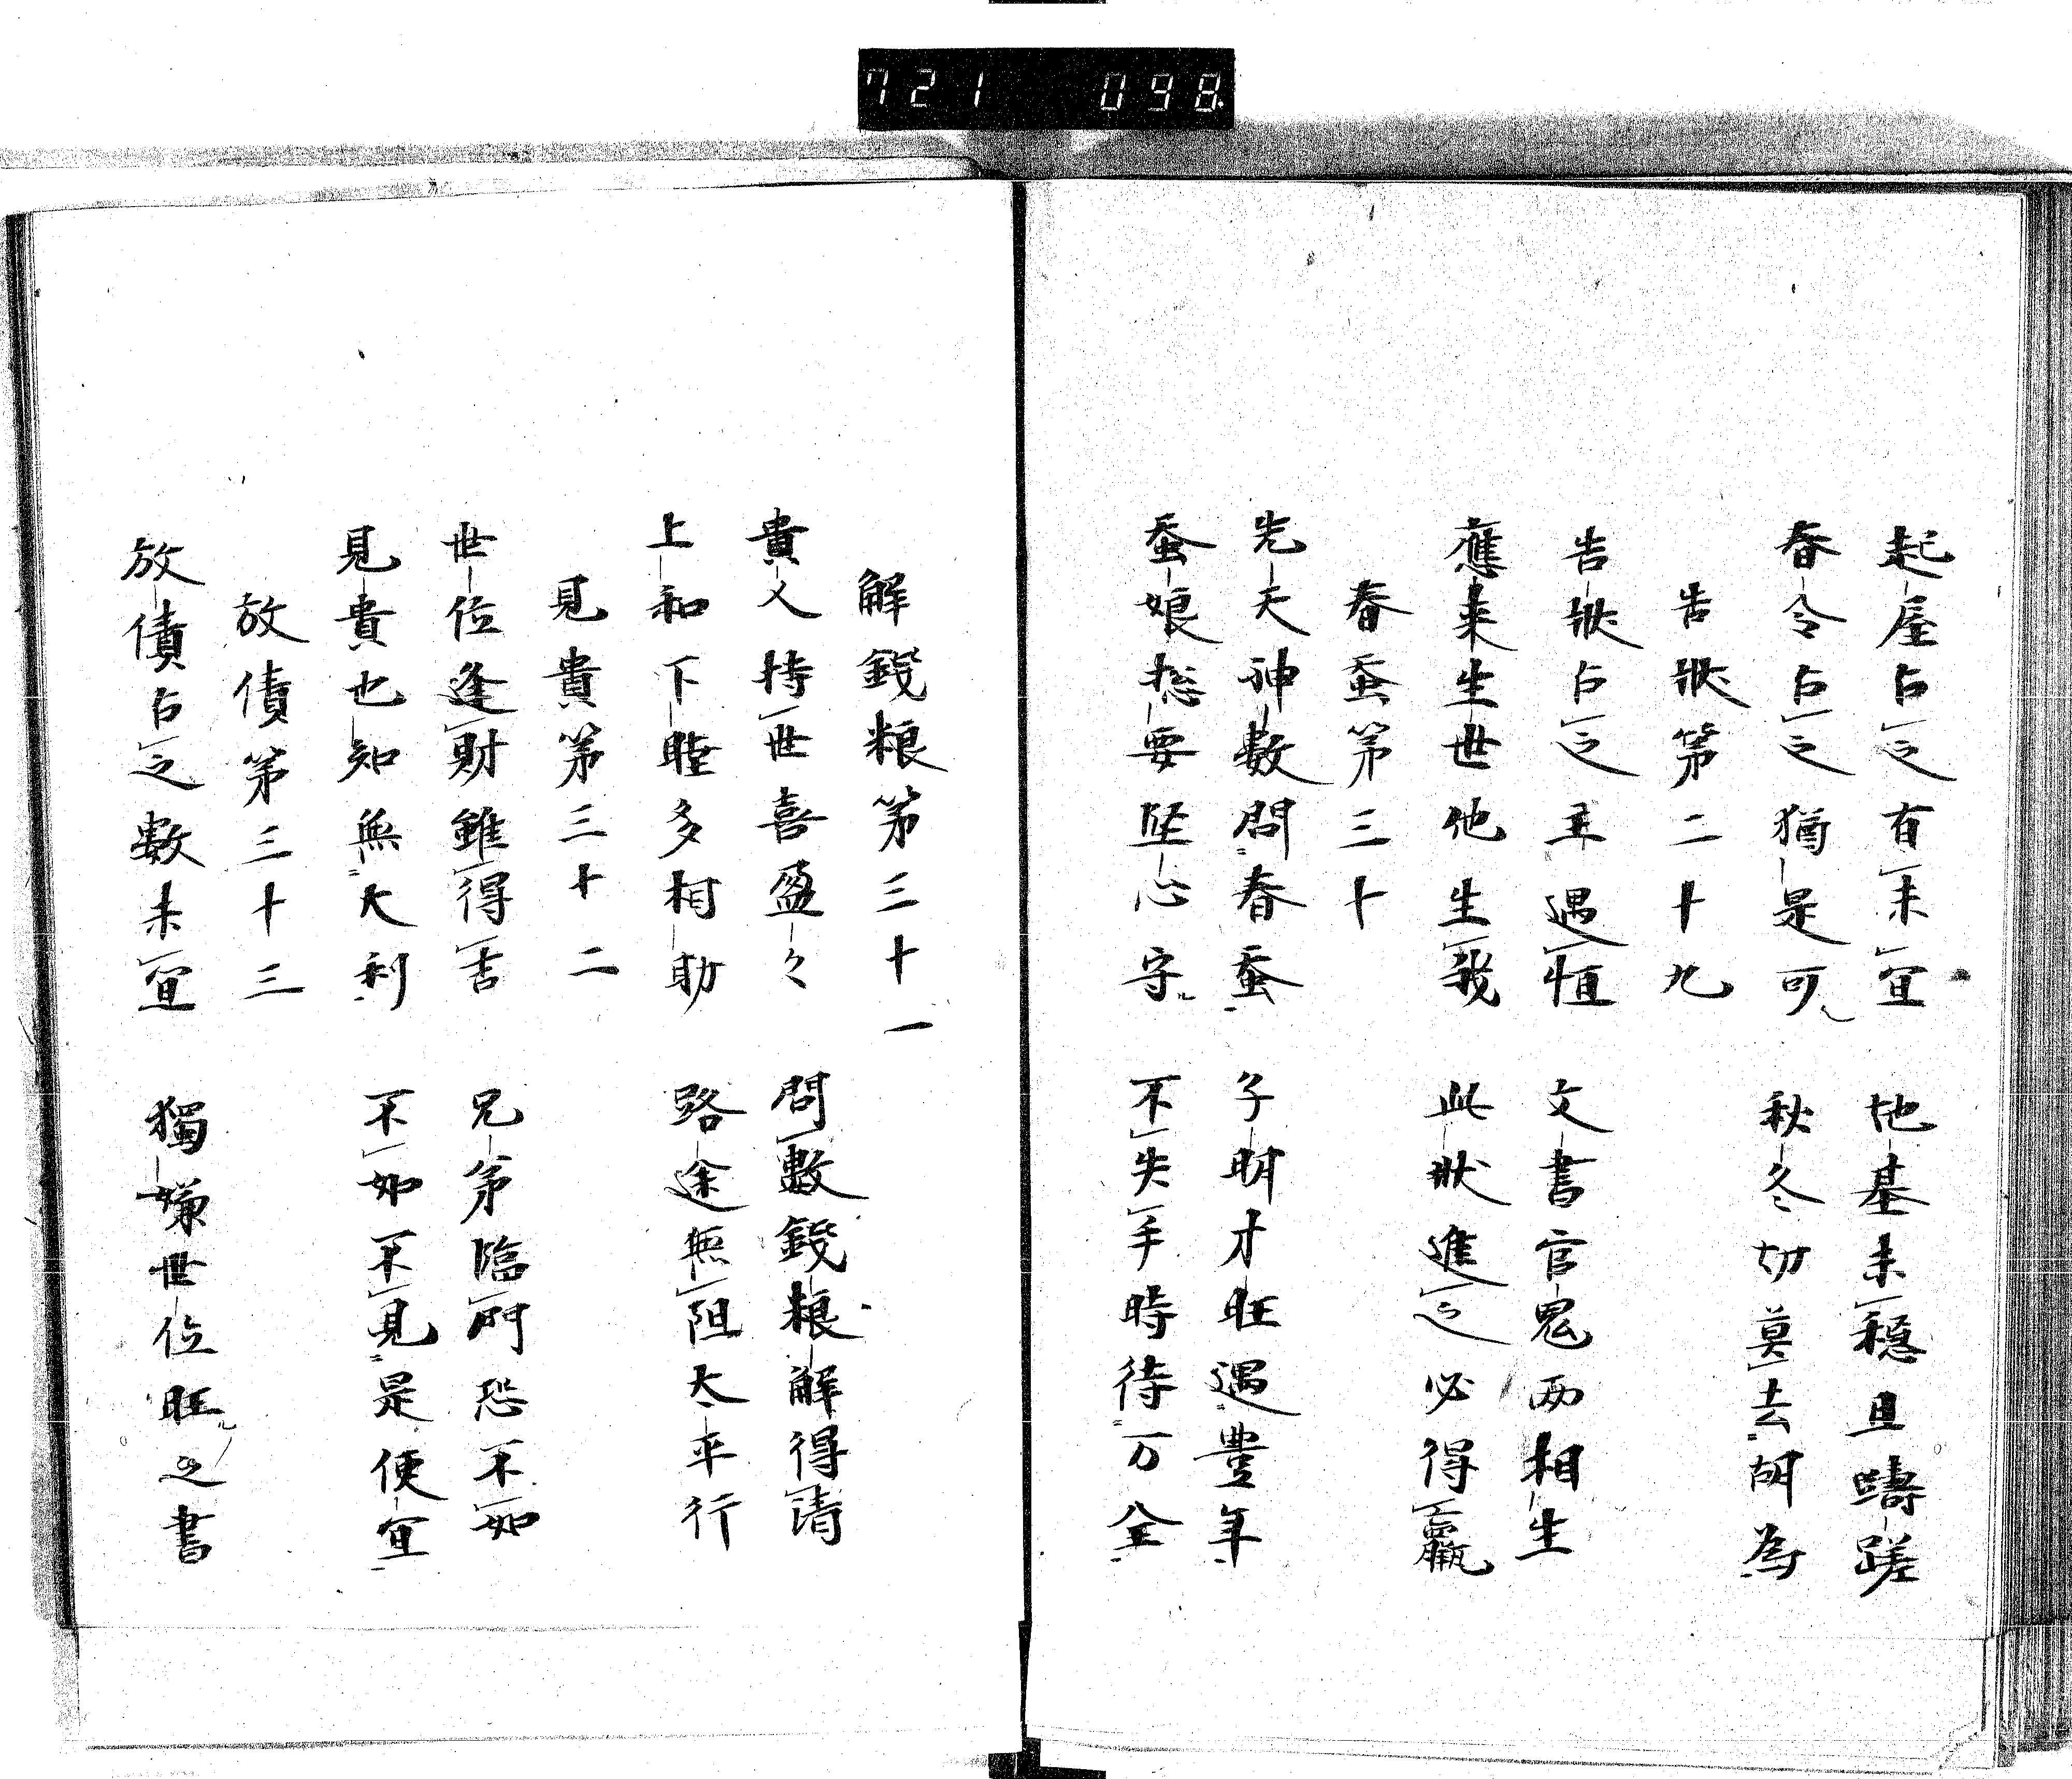 721 098
起屋占之有未宜 地基未穩且躊蹉
春令占之猶是可 秋冬切莫去胡為
告狀第二十九
告狀占之主遇恒 文書官鬼两相生
應来生世他生我 此狀進之必得贏
春蚕第三十
先天神數問春蚕 子明才旺遇豊年
蚕娘揔要坚心守 不失手時待万全
解錢粮第三十一
貴人持世喜盈々 問數錢粮解得清
上和下睦多相助 路途無阻太平行
見貴第三十二
世位逢財雖得吉 兄弟臨門恐不如
見貴也知無大利 不如不見是便宜
放債第三十三
放債占之數未宜 獨嫌世位旺之書